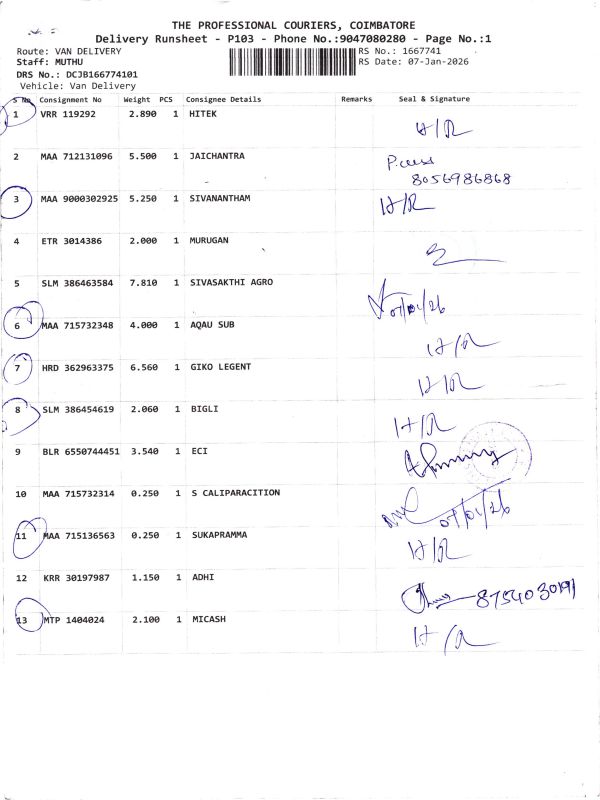 THE PROFESSIONAL COURIERS, COIMBATORE
Delivery Runsheet - P103 - Phone No.:9047080280 - Page No.:1
Route: VAN DELIVERY RS No.: 1667741
Staff: MUTHU RS Date: 07-Jan-2026
DRS No.: DCJB166774101
Vehicle: Van Delivery
S No Consignment No Weight PCS Consignee Details Remarks Seal & Signature
1 VRR 119292 2.890 1 HITEK
H/R
2 MAA 712131096 5.500 1 JAICHANTRA
8056986868
3 MAA 9000302925 5.250 1 SIVANANTHAM H/R
4 ETR 3014386 2.000 1 MURUGAN
5 SLM 386463584 7.810 1 SIVASAKTHI AGRO
07/01/26
6 MAA 715732348 4.000 1 AQAU SUB
H/R
7 HRD 362963375 6.560 1 GIKO LEGENT
H/R
8 SLM 386454619 2.060 1 BIGLI
H/R
9 BLR 6550744451 3.540 1 ECI
10 MAA 715732314 0.250 1 S CALIPARACITION
07/01/26
11 MAA 715136563 0.250 1 SUKAPRAMMA
H/R
12 KRR 30197987 1.150 1 ADHI
13 MTP 1404024 2.100 1 MICASH
H/R